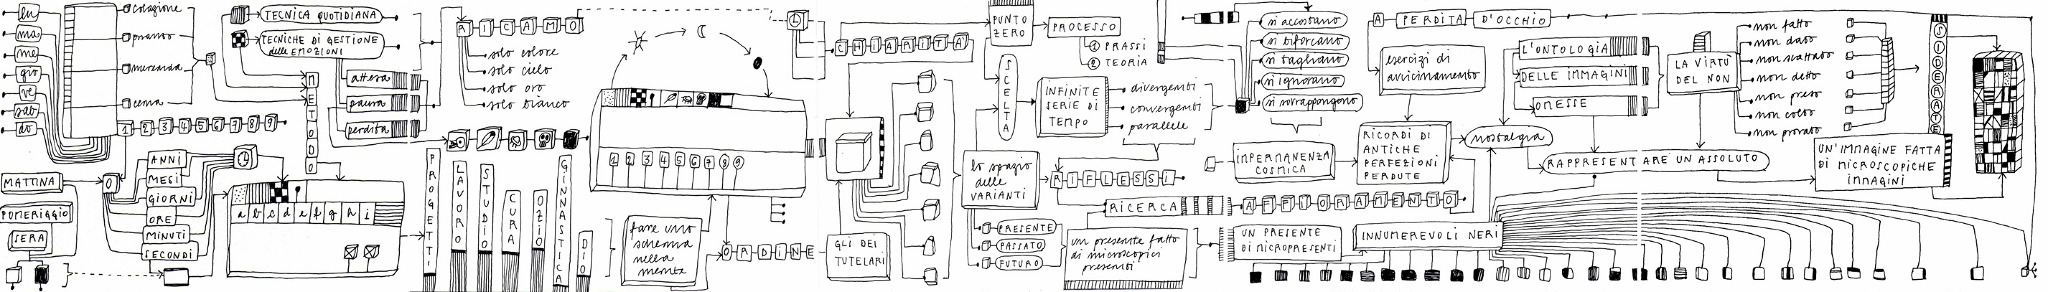 lu
ma
me
gio
ve
sab
do
colazione
pranzo
merenda
cena
1 2 3 4 5 6 7 8 9
MATTINA
POMERIGGIO
SERA
0
ANNI
MESI
GIORNI
ORE
MINUTI
SECONDI
TECNICA QUOTIDIANA
TECNICHE DI GESTIONE
delle EMOZIONI
METODO
attesa
paura
perdita
a b c d e f g h i
RICAMO
solo colore
solo cielo
solo oro
solo bianco
PROGETTI
LAVORO
STUDIO
CURA
OZIO
GINNASTICA
DIO
1 2 3 4 5 6 7 8 9
fare uno
schema
nella
mente
ORDINE
CHIARITÀ
GLI DEI
TUTELARI
PUNTO
ZERO
PROCESSO
1 PRASSI
2 TEORIA
SCELTA
INFINITE
SERIE DI
TEMPO
divergenti
convergenti
parallele
lo spazio
delle
VARIANTI
RIFLESSI
PRESENTE
PASSATO
FUTURO
un presente fatto
di microscopici
presenti
RICERCA
AFFIORAMENTO
si accostano
si biforcano
si tagliano
si ignorano
si sovrappongono
IMPERMANENZA
COSMICA
UN PRESENTE
DI MICROPRESENTI
INNUMEREVOLI NERI
A PERDITA D'OCCHIO
esercizi di
avvicinamento
RICORDI DI
ANTICHE
PERFEZIONI
PERDUTE
nostalgia
L'ONTOLOGIA
DELLE IMMAGINI
OMESSE
RAPPRESENTARE UN ASSOLUTO
LA VIRTÙ
DEL NON
non fatto
non dato
non scattato
non detto
non preso
non colto
non provato
UN'IMMAGINE FATTA
DI MICROSCOPICHE
IMMAGINI
SIDERATE